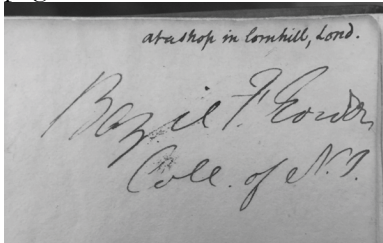 at a shop in Cornhill, Lond.
Bazil F. Gordon
Coll. of N.J.